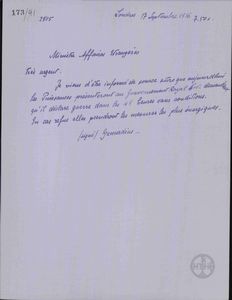 173/41
Londres 17 Septembre 1916
Ministre Affaires Etrangères
Très urgent:
Je viens d'être informé de source sûre que aujourd'hui
les Puissances présenteront au Gouvernement Royal
qu'il déclare guerre dans les 48 heures sans conditions.
En cas refus elles prendront les mesures les plus énergiques.
(signé) Gennadius